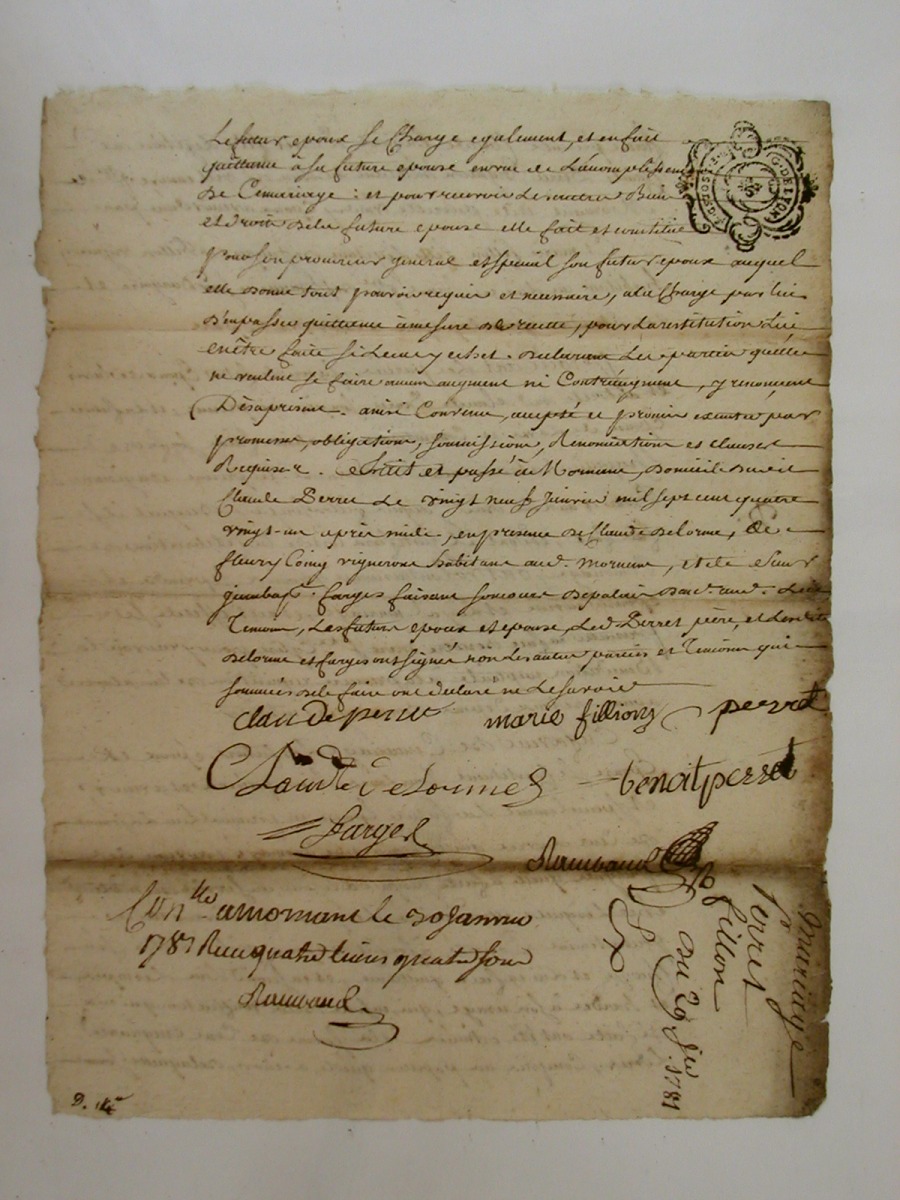 Le futur epoux se Charge egalement, et en fait
quittance à sa future epouse en vue de L'accomplissem
de Ce mariage : et pour recevoir Les autres Biens
et droits de la future epouse elle fait et constitue
pour son procureur general et special son futur epoux auquel
elle donne tout pouvoir requis et necessaire, a la Charge par lui
d'en passer quittance à mesure de recette, pour La restitution Lui
en être faite si Le cas y echet. declarant Les parties qu'elles
ne veulent se faire aucun augment ni Contr'augment, y renonçant
Dès à present. ainsi Convenu, accepté et promis executer par
promesses, obligations, soumissions, Renonciations et clauses
Requises. fait et passé à Mornant, Domicile dudit
Claude Perret Le vingt neuf Janvier mil sept cent quatre
vingt-un après midi, en presence de Claude Delorme, & de
fleury Coing vignerons habitans aud. Mornant, et de Sieur
jean bap. farges faisant
Temoins, Les futurs epoux et epouse, Led. Perret père, et Lesdits
Delorme et farges ont signé non Les autres parties et Temoins qui
sommés de le faire ont declaré ne Le savoir
claude perret marie fillion perret
Claude deLorme benoit perret
farges
Raimbaud
Con lle a mornant le 30 Janvier
1781 Reçu quatre livres quatre sous
Raimbaud
mariage
perret
&
fillion
du 29 Jer 1781
G. DE LYON